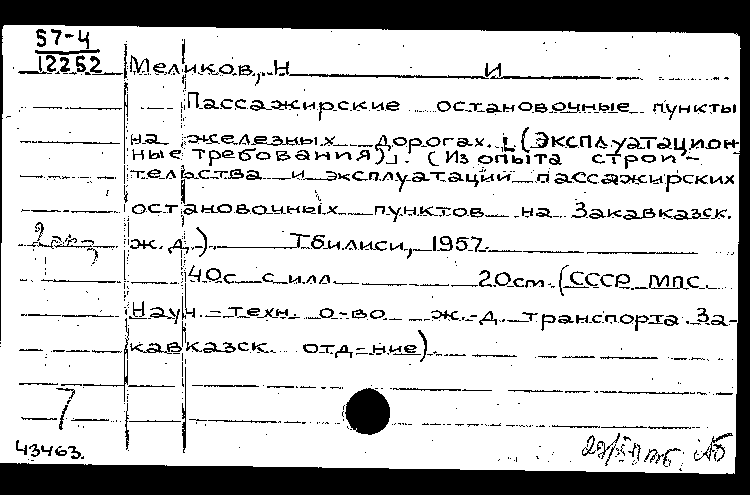 57-4
12252
Меликов, Н И
Пассажирские остановочные пункты
на железных дорогах. [(Эксплуатацион-
ные требования)]. (Из опыта строи-
тельства и эксплуатации пассажирских
остановочных пунктов на Закавказск.
2 экз
ж.д.). Тбилиси, 1957.
40с. с илл. 20см. (СССР МПС.
Науч.-техн. о-во ж.-д. транспорта. За-
кавказск. отд-ние).
7
43463.